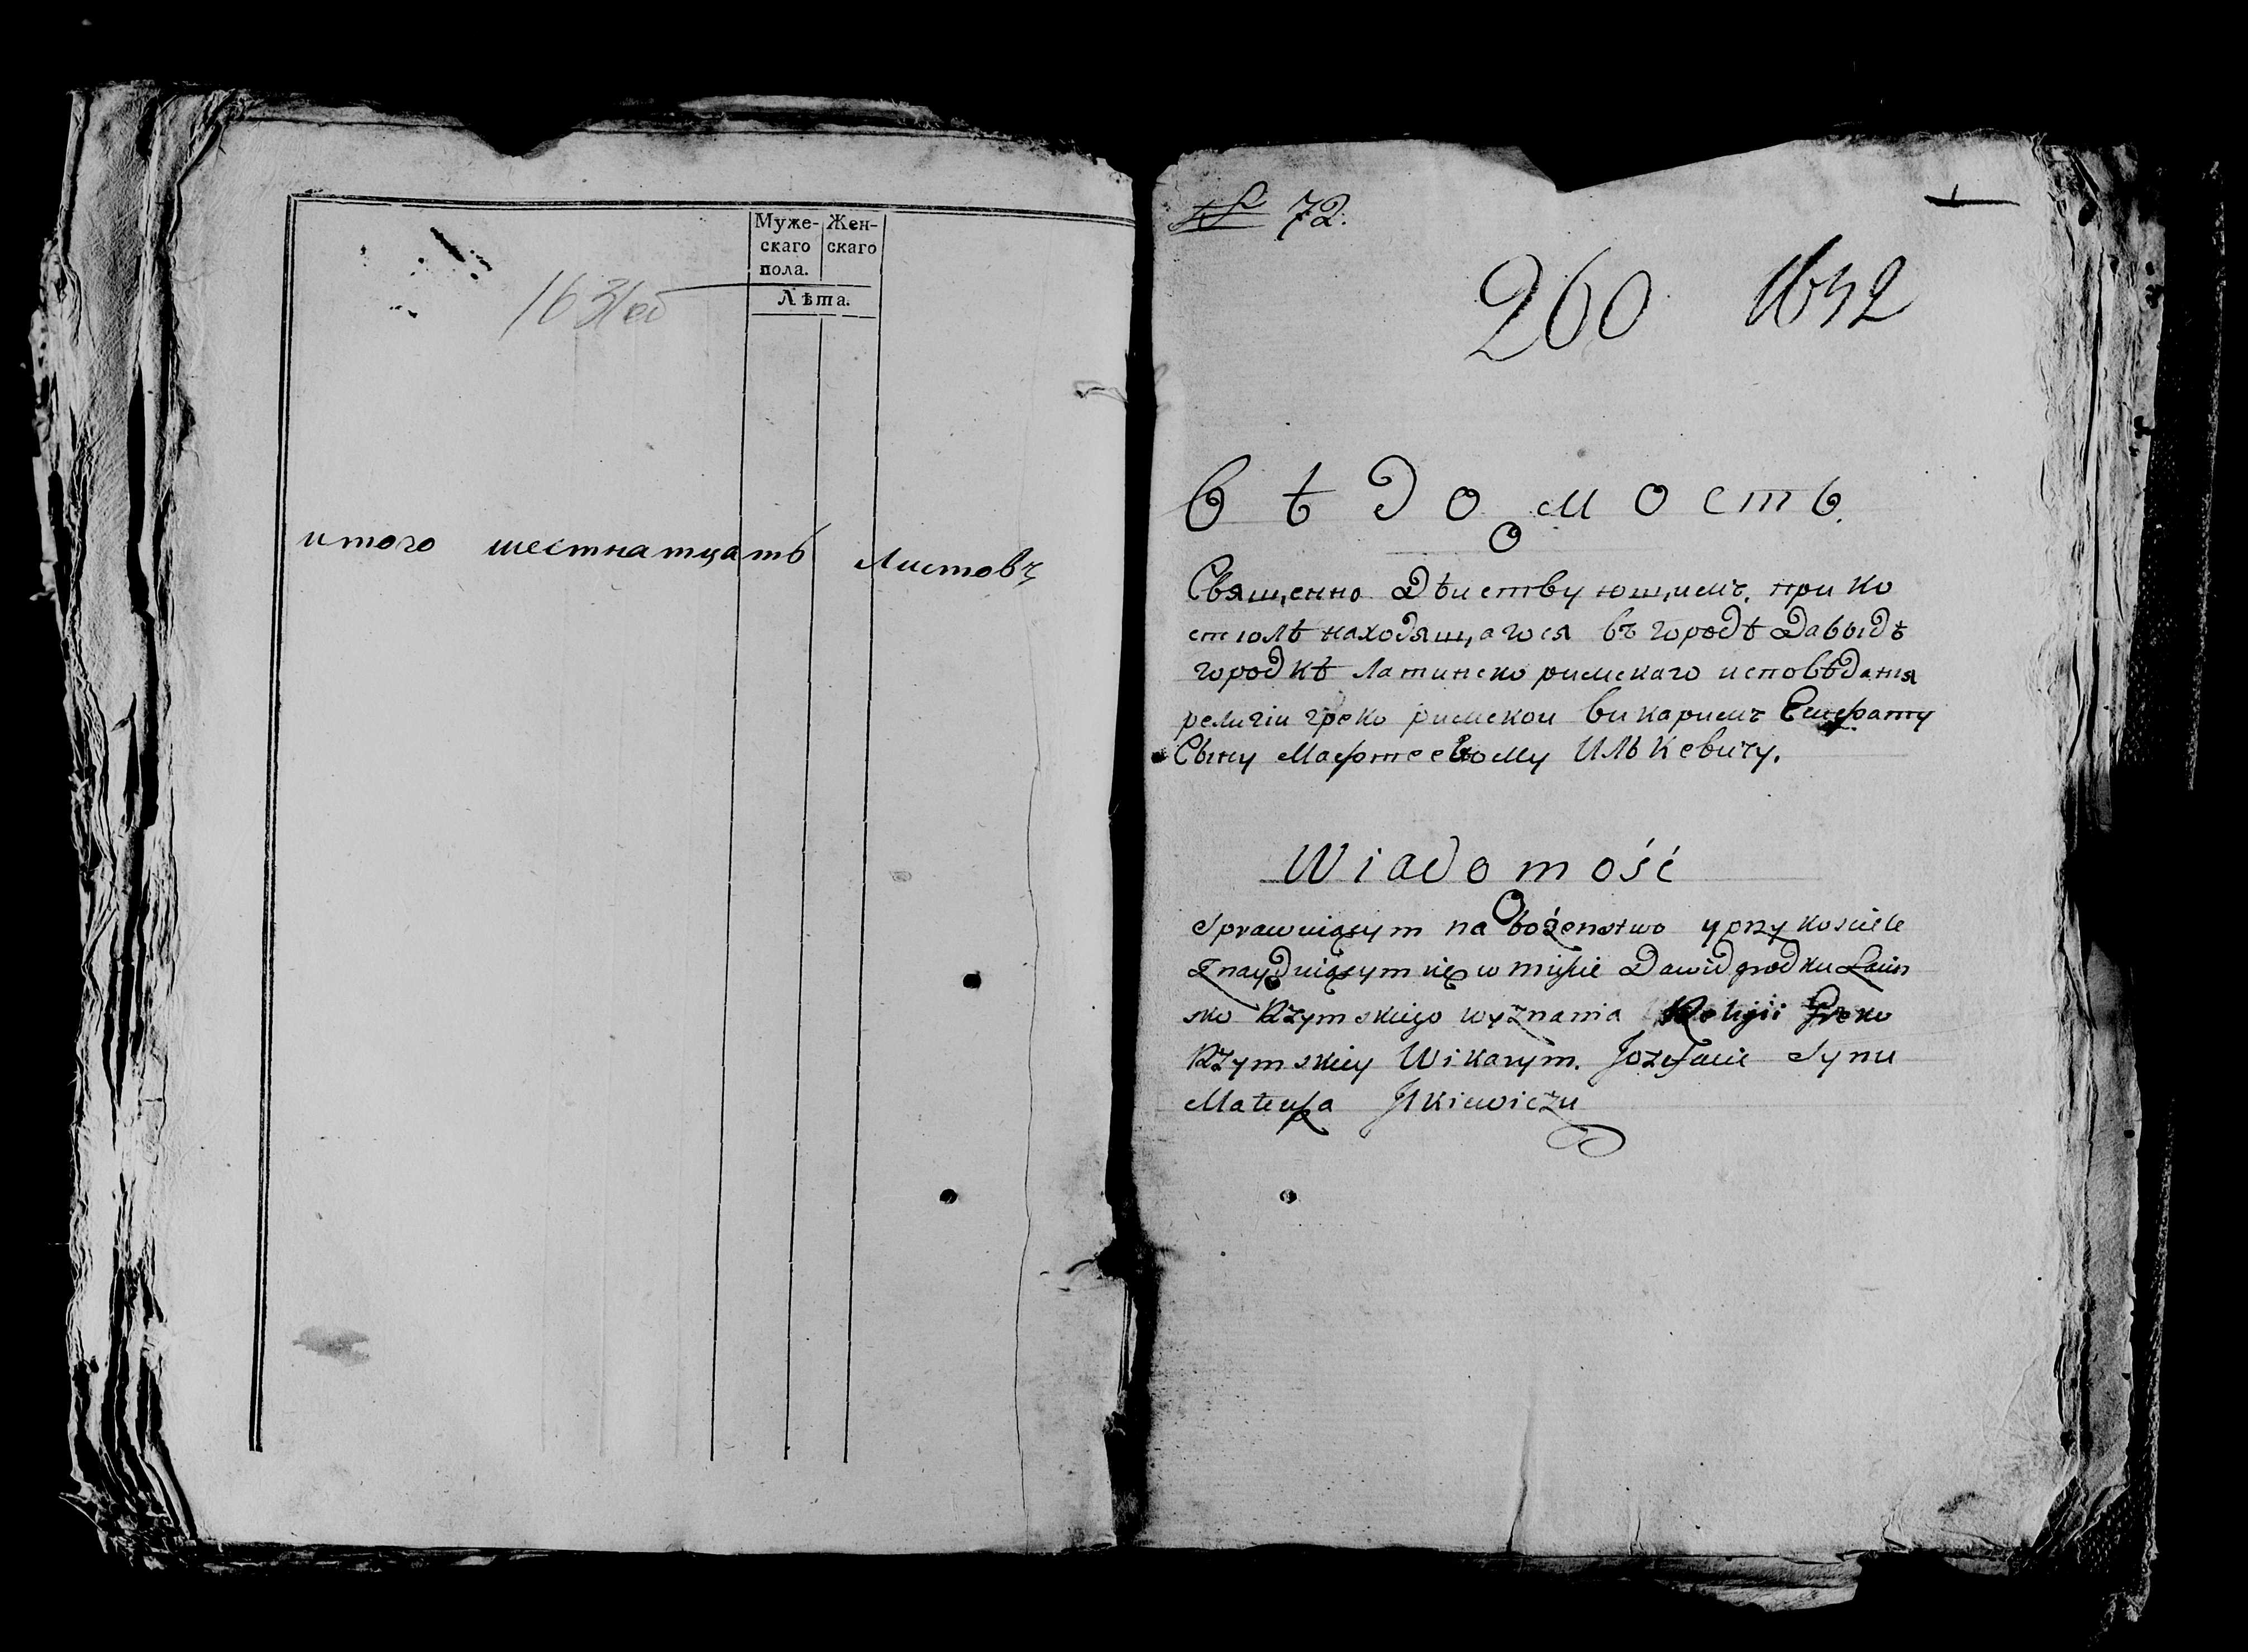 Муже-
скаго
пола.
Жен-
скаго
Лѣта.
итого шестнатцать Листовъ
№ 72.
1
260
вѣдомость
О
Священно Дѣиствующимъ, при ко
стюлѣ находящагося въ городѣ Давыдѣ
городкѣ латинско римскаго исповѣдания
религіи греко римскои викаримъ
Сыну Мафтеевому Илькевичу.
Wiadomość
O
Sprawuiąsym na bożenstwo y przy kosciele
Znayduiąsym się w mieście Dawidgrodku Lacin
sko Rzymskiego wyznania Religii Greko
Rzymskiey Wikarym. Jozefacie Synu
Mateusza Ilkiewiczu